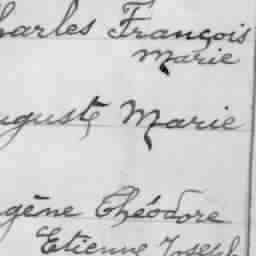 harles François
Marie
uguste Marie
gène Théodore
Etienne Joseph